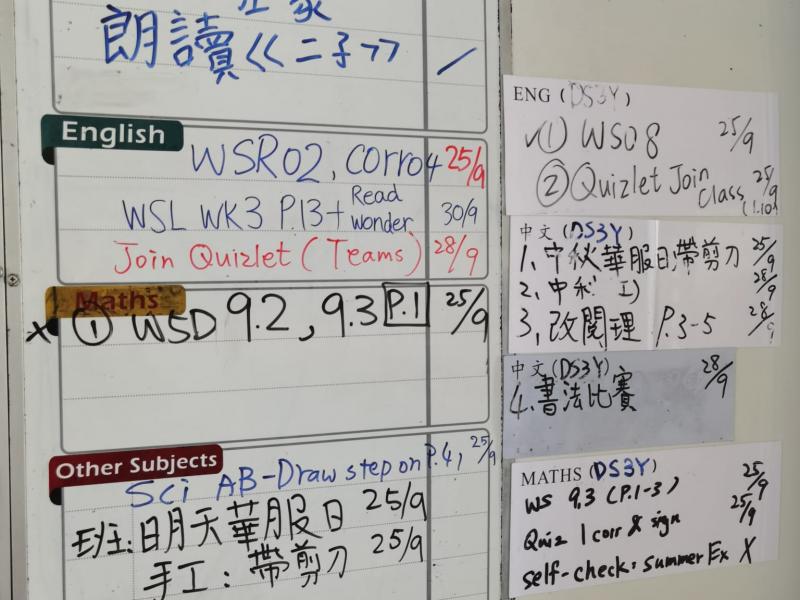 在家
朗讀《二子》
English
WSR02, Corr04 25/9
WSL WK3 P.13+ Read wonder 30/9
Join Quizlet (Teams) 28/9
Maths
x ① WSD 9.2, 9.3 P.1 25/9
Other Subjects
Sci AB-Draw step on P.4, 25/9
班主: 明天華服日 25/9
手工: 帶剪刀 25/9
ENG (DS3Y)
✓① WS08 25/9
② Quizlet Join Class 25/9
中文 (DS3Y)
1. 中秋華服日,帶剪刀 25/9
2. 中秋 工) 28/9
3, 改閱理 P.3-5 28/9
中文 (DS3Y)
4. 書法比賽 28/9
MATHS (DS3Y)
WS 9.3 (P.1-3) 25/9
Quiz 1 corr & sign 25/9
self-check: summer Ex X